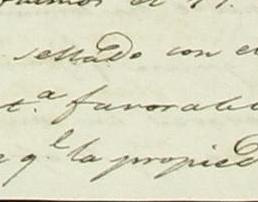 el 11.
sellado con e
t.ª favorable
q.ᵉ la propied